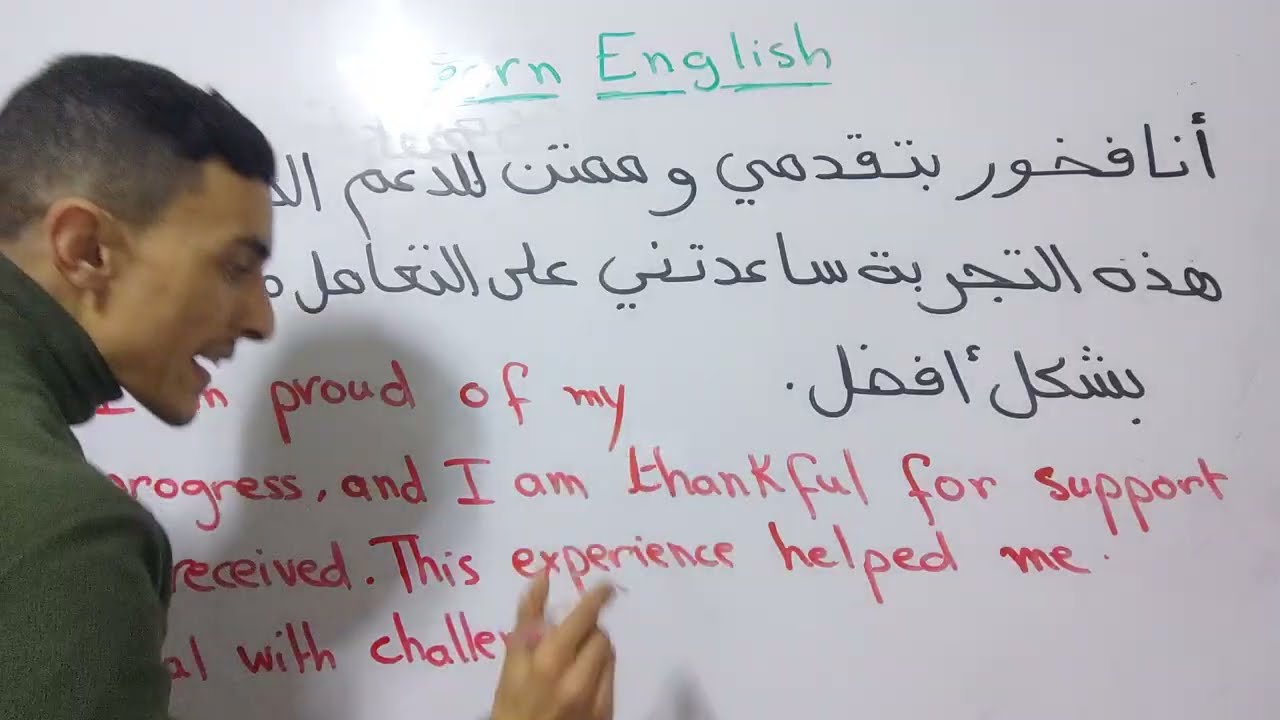 English
أنا فخور بتقدمي و ممتن للدعم
هذه التجربة ساعدتني على التعامل
بشكل أفضل.
proud of my
progress, and I am thankful for support
received. This experience helped me.
with